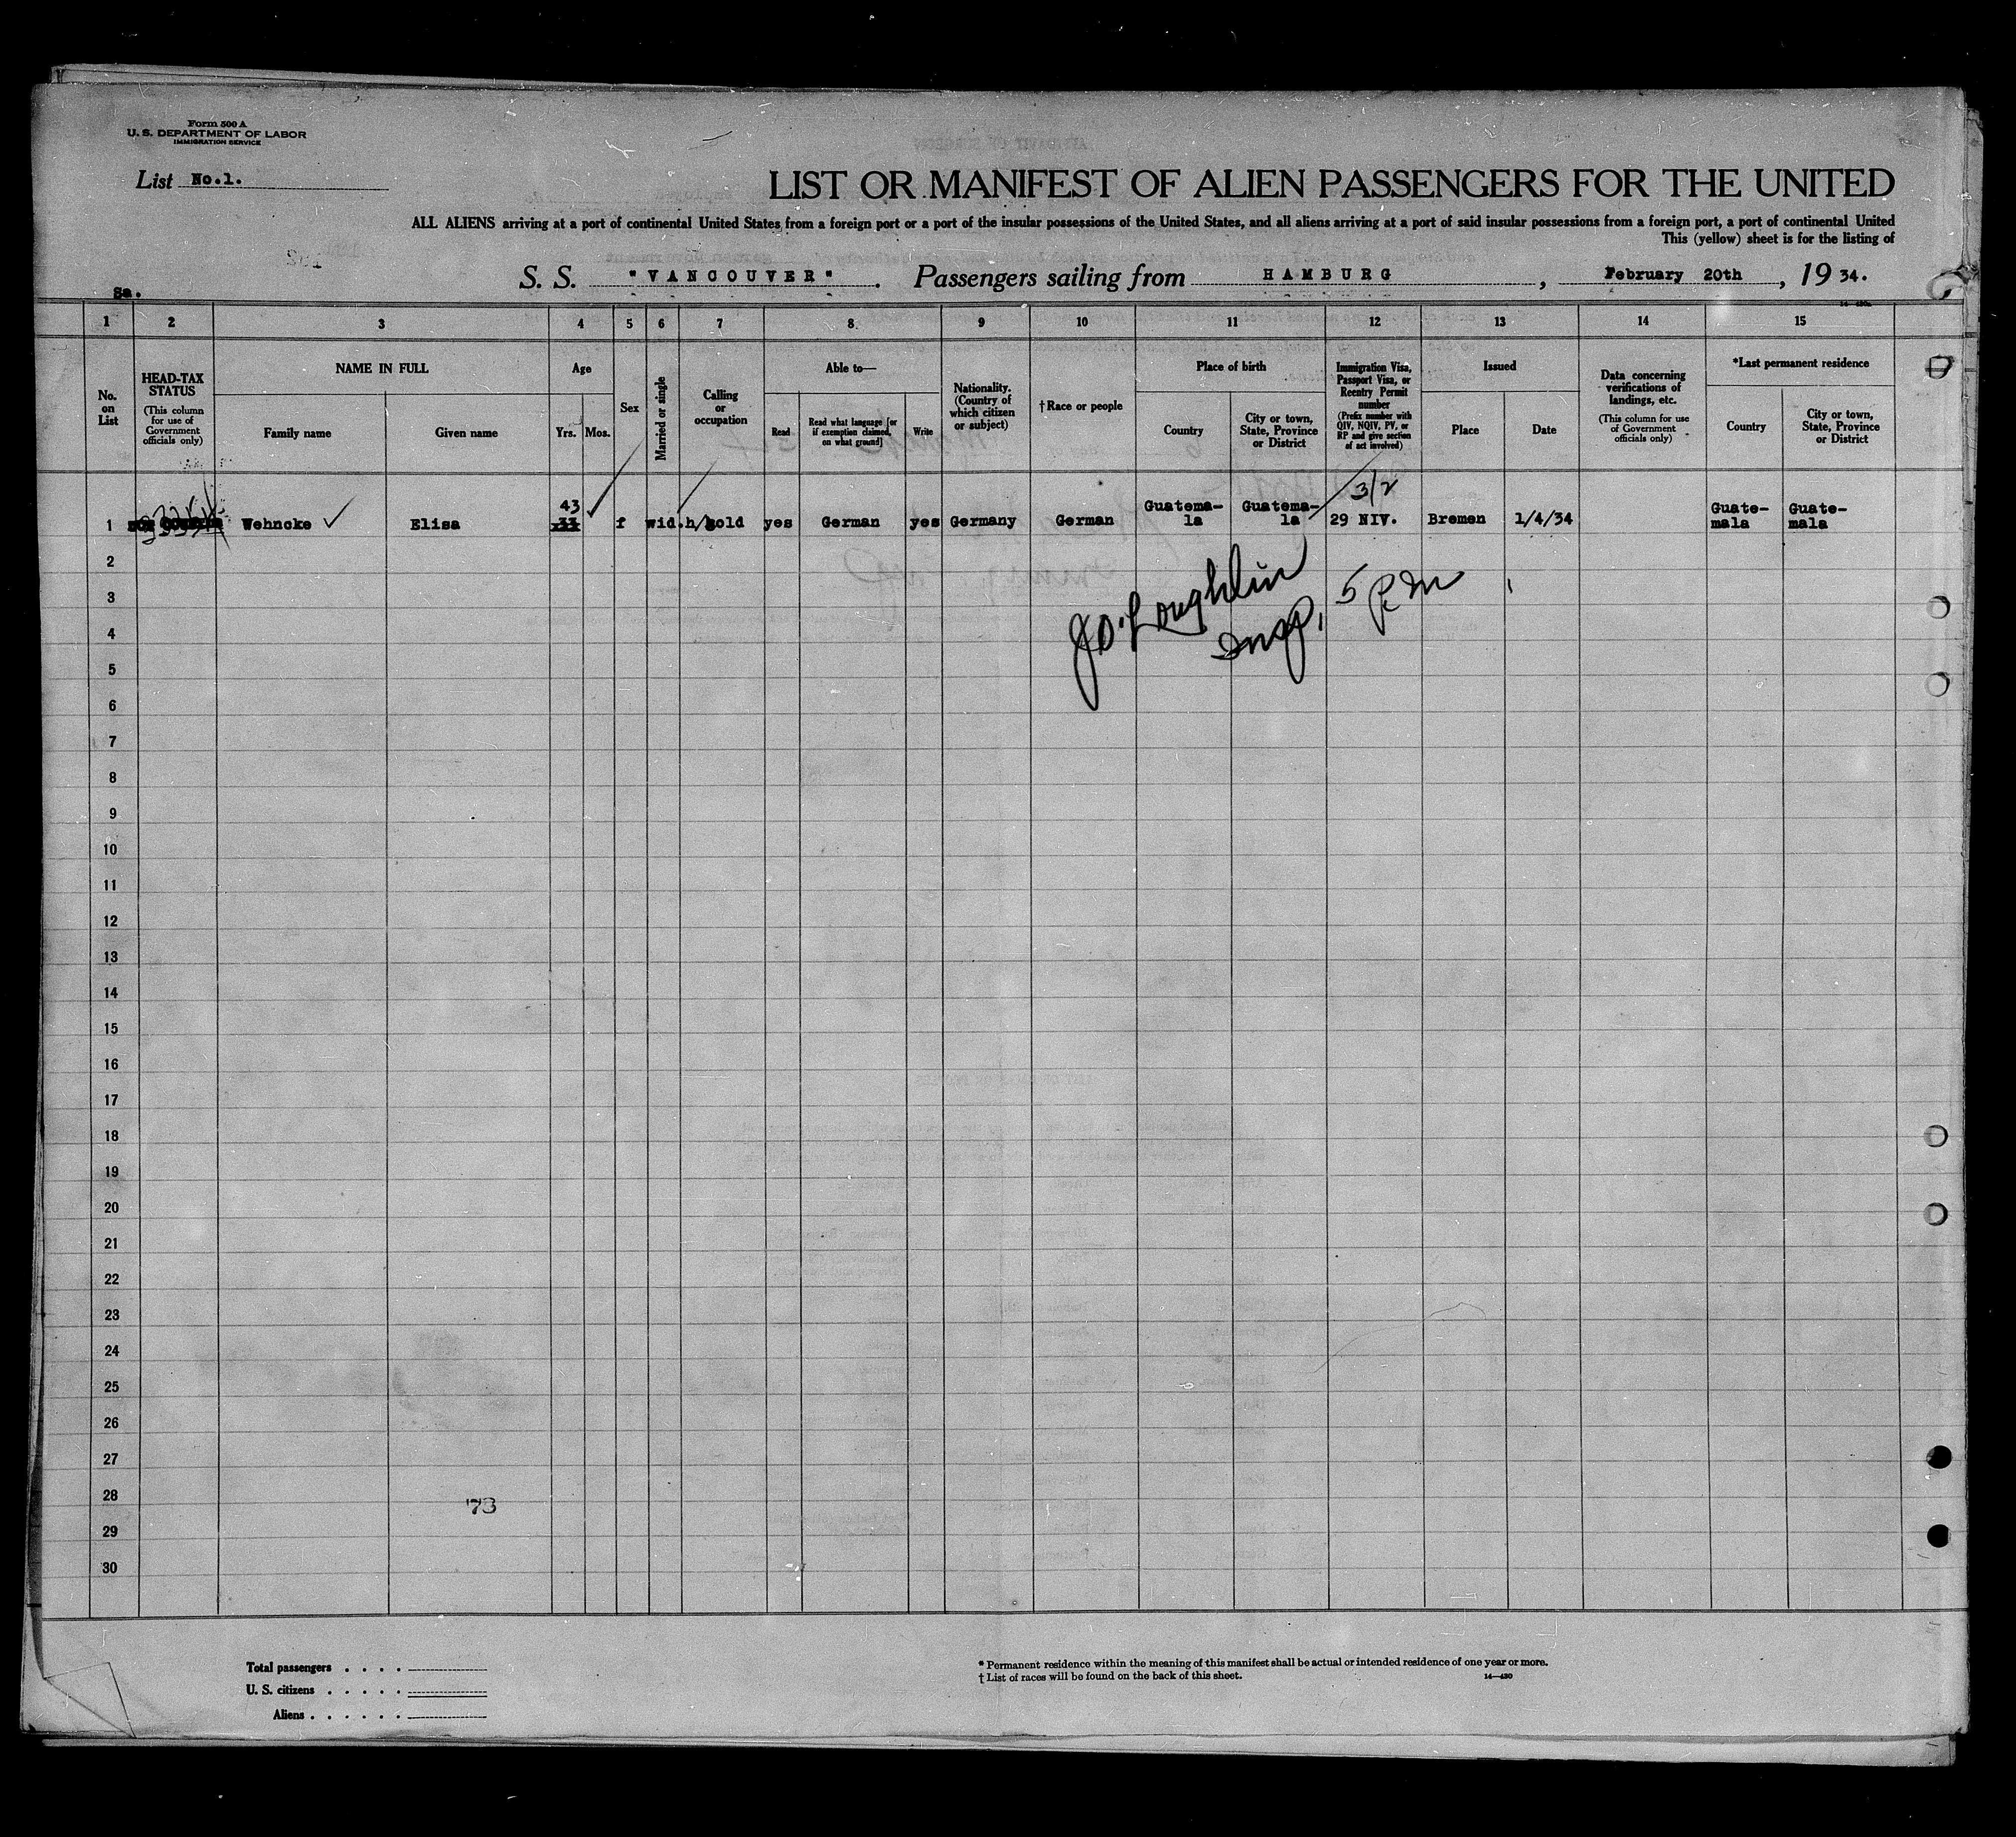 Form 500 A
U. S. DEPARTMENT OF LABOR
IMMIGRATION SERVICE
List No.1.
LIST OR MANIFEST OF ALIEN PASSENGERS FOR THE UNITED
ALL ALIENS arriving at a port of continental United States from a foreign port or a port of the insular possessions of the United States, and all aliens arriving at a port of said insular possessions from a foreign port, a port of continental United
This (yellow) sheet is for the listing of
S. S. "VANCOUVER". Passengers sailing from HAMBURG, February 20th, 1934.
Sa.
1 2 3 4 5 6 7 8 9 10 11 12 13 14 15
No. on List
HEAD-TAX STATUS
(This column for use of Government officials only)
NAME IN FULL
Family name
Given name
Age
Yrs. Mos.
Sex
Married or single
Calling or occupation
Able to—
Read
Read what language [or if exemption claimed, on what ground]
Write
Nationality. (Country of which citizen or subject)
† Race or people
Place of birth
Country
City or town, State, Province or District
Immigration Visa, Passport Visa, or Reentry Permit number
(Prefix number with QIV, NQIV, PV, or RP and give section of act involved)
Issued
Place
Date
Data concerning verifications of landings, etc.
(This column for use of Government officials only)
*Last permanent residence
Country
City or town, State, Province or District
3/2
43
1 Wehncke Elisa 33 f wid. h/hold yes German yes Germany German Guatema-la Guatema-la 29 NIV. Bremen 1/4/34 Guate-mala Guate-mala
J O'Loughlin
Insp. 5 P.M
2
3
4
5
6
7
8
9
10
11
12
13
14
15
16
17
18
19
20
21
22
23
24
25
26
27
28
29
30
'73
Total passengers . . . .
U. S. citizens . . . . .
Aliens . . . . . .
* Permanent residence within the meaning of this manifest shall be actual or intended residence of one year or more.
† List of races will be found on the back of this sheet.
14—430